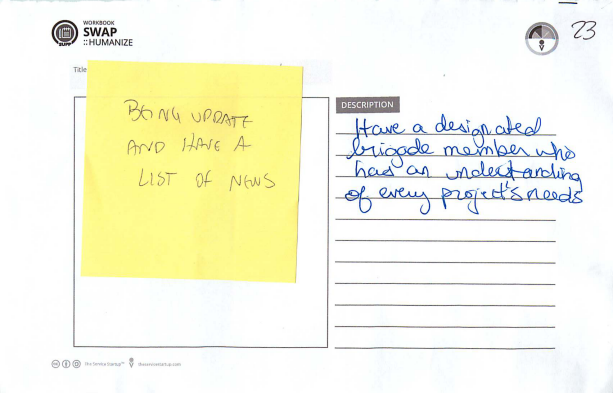 WORKBOOK
SWAP
::HUMANIZE
23
Title
BEING UPDATE
AND HAVE A
LIST OF NEWS
DESCRIPTION
Have a designated
brigade member who
has an understanding
of every project's needs
the Service Startup™ theservicestartup.com